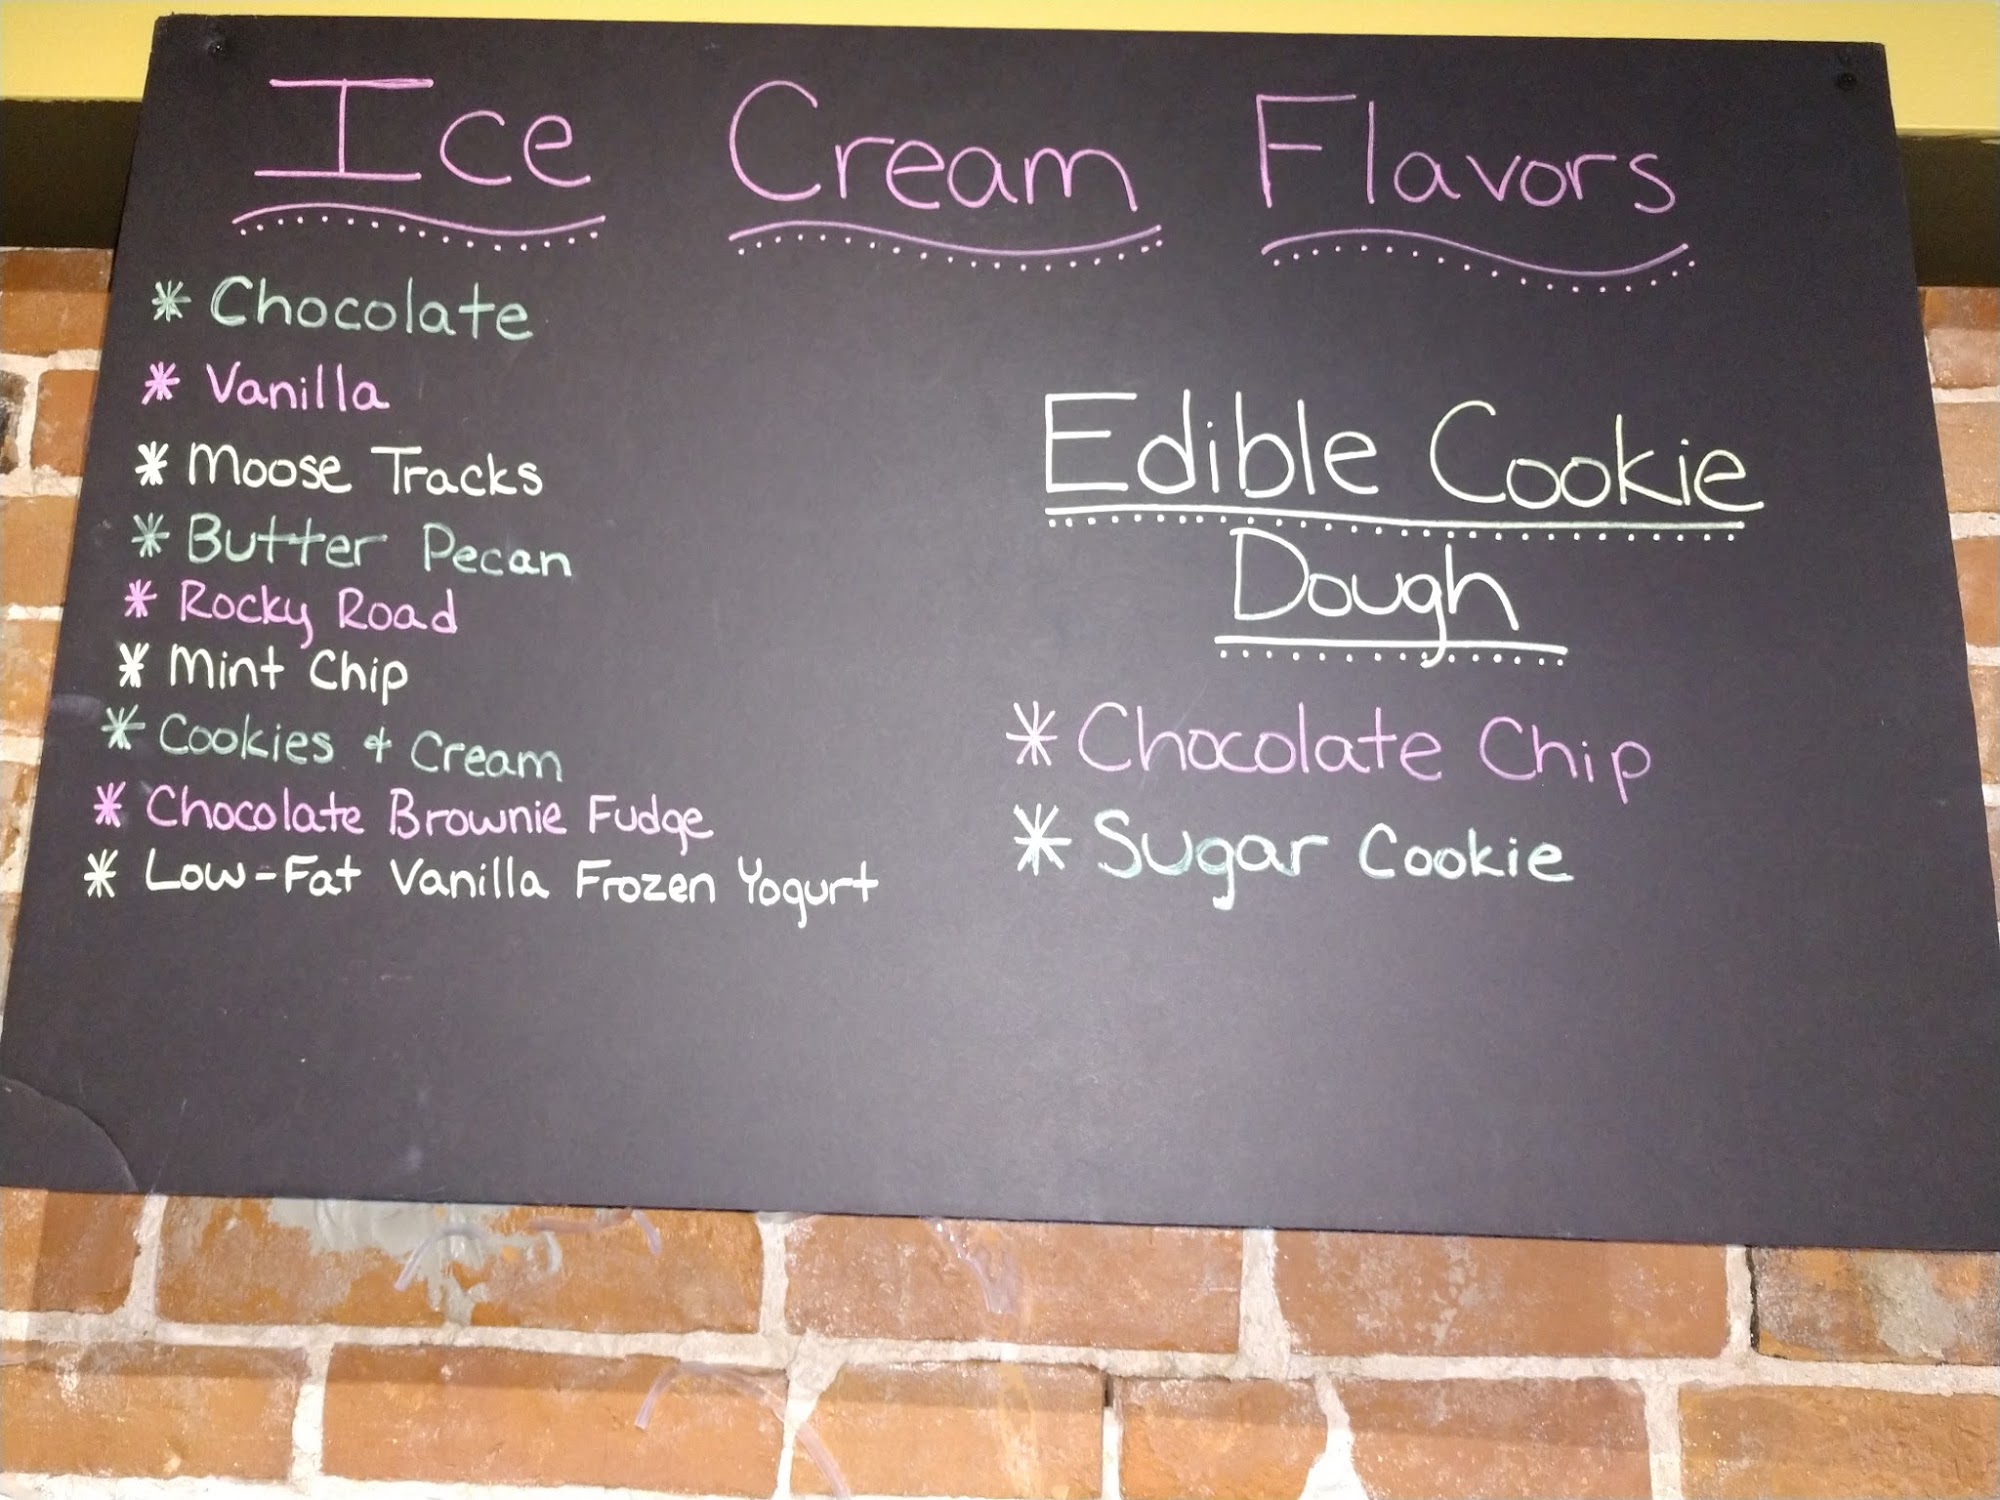 Ice Cream Flavors
* Chocolate
* Vanilla
* Moose Tracks
* Butter Pecan
* Rocky Road
* Mint Chip
* Cookies & Cream
* Chocolate Brownie Fudge
* Low-Fat Vanilla Frozen Yogurt
Edible Cookie
Dough
* Chocolate Chip
* Sugar Cookie